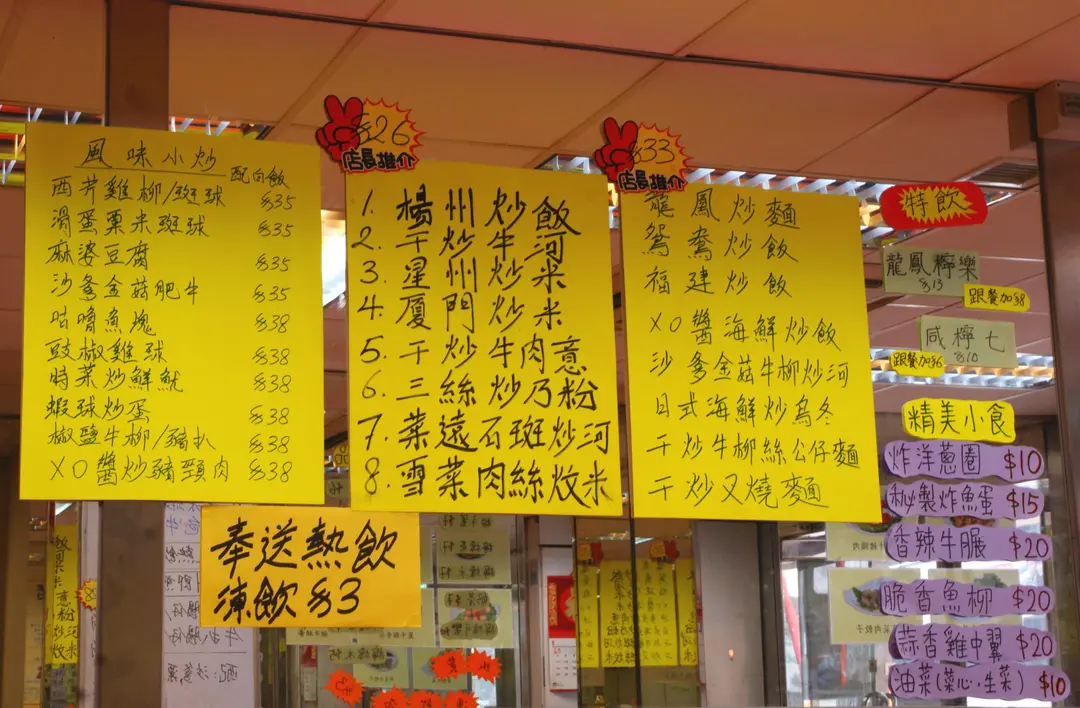 風味小炒 配白飯
西芹雞柳/斑球 $35
滑蛋粟米斑球 $35
麻婆豆腐 $35
沙爹金菇肥牛 $35
咕嚕魚塊 $38
豉椒雞球 $38
時菜炒鮮魷 $38
蝦球炒蛋 $38
椒鹽牛柳/豬扒 $38
XO醬炒豬頸肉 $38
奉送熱飲
凍飲$3
$26
店長推介
1. 楊州炒飯
2. 干炒牛河
3. 星州炒米
4. 厦門炒米
5. 干炒牛肉意
6. 三絲炒乃粉
7. 菜遠石斑炒河
8. 雪菜肉絲炆米
$33
店長推介
龍鳳炒麵
鴛鴦炒飯
福建炒飯
XO醬海鮮炒飯
沙爹金菇牛柳炒河
日式海鮮炒烏冬
干炒牛柳絲公仔麵
干炒叉燒麵
特飲
龍鳳檸樂
$13
跟餐加$8
咸檸七
$10
跟餐加$6
精美小食
炸洋蔥圈 $10
秘製炸魚蛋 $15
香辣牛𦟌 $20
脆香魚柳 $20
蒜香雞中翼 $20
油菜(菜心·生菜) $10